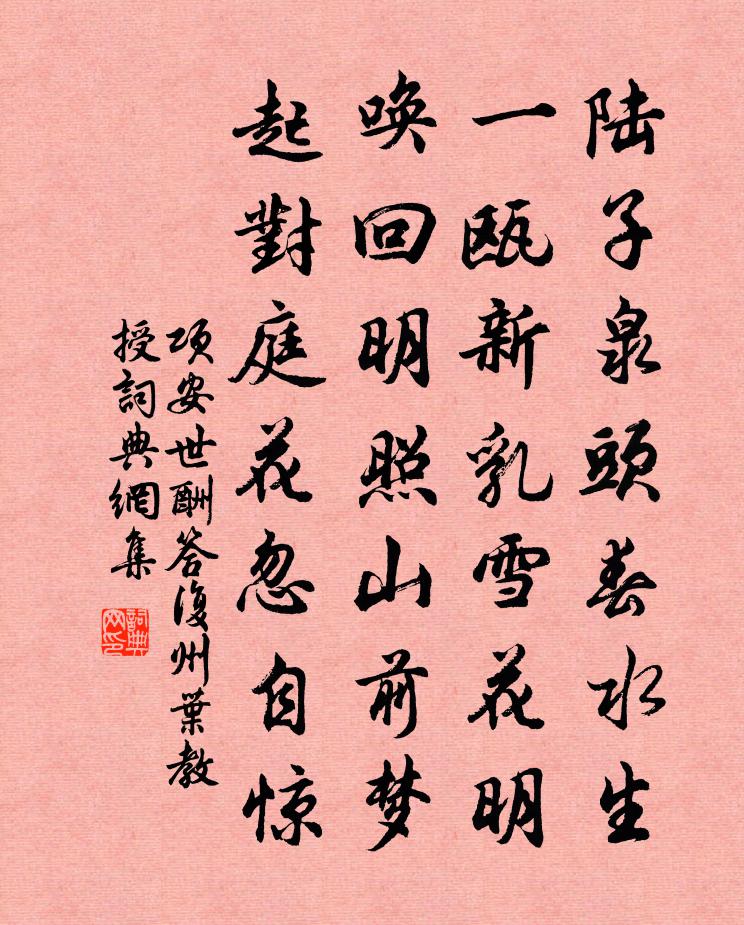 陆子泉頭春水生
一瓯新乳雪花明
唤回明照山前梦
起對庭花忽自惊
项安世酬答復州葉教
授詞典網集
詞典網印